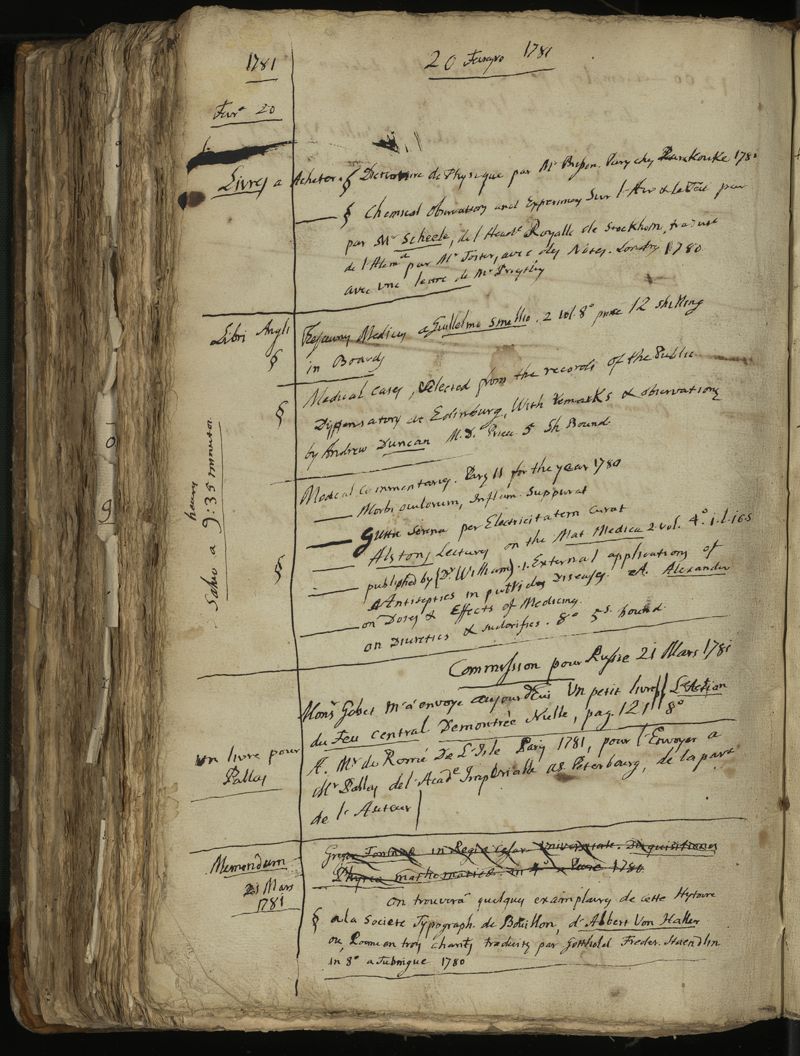 1781
20 Janaro 1781
Janr 20
Livres a Acheter. § Dictionaire de Physique par Mr Brisson. Parys chez Pankouke 1781
§ Chemical Observations and Experiments Sur l'Air & le Feu par
par Mr Scheele, de l'Acade Royalle de Stockholm, traduit
de l'Alemd par Mr Forster, avec des Notes. Londres 1780
avec une lettre de Mr Priestley
Libri Angli
§
Thesaurus Medicus a Guillelmo Smellio. 2 vol. 8° price 12 shilling
in Boards
§
Medical Cases, selected from the records of the Public
Dispensatory at Edinburg, With remarks & observations
by Andrew Duncan M.D. Price 5 Sh Bound
Medical Commentarys. Pars II for the year 1780
— Morbi oculorum, Inflam. Suppurat
— Gutta Serena per Electricitatem curat
§
— Alstons Lectures on the Mat Medica 2 vol. 4°
— published by (Dr William). 1. External applications of
Antiseptics in putrid Diseases. A. Alexander
— on Doses & Effects of Medicins.
on Diuretics & sudorifics. 8° 5s bound
hours
9:35 minutes
Commission pour Russie 21 Mars 1781
un livre pour
Pallas
Monsr Gobet m'a envoyé aujourd'huis Un petit livre // L'Action
du Feu Central Demontrée Nulle, pag. 121 // 8°
A. Mr de Romé De L'Isle Parys 1781, pour l'Envoyer a
Mr Pallas de l'Acade Imperialle a St Peterbourg, de la part
de l'Auteur
Memorandum
21 Mars
1781
Gregor Fontana in Regia Universitate. Disquisitiones
Physico mathematicae. in 4° a Pavie 1780
On trouvera quelques examplaires de cette Hystoire
§ a la Societé Typograph. de Bouillon, d'Albert Von Haller
ou, Poeme en trois chants traduits par Gotthold Freder. Staendlin
in 8° a Tubingue 1780